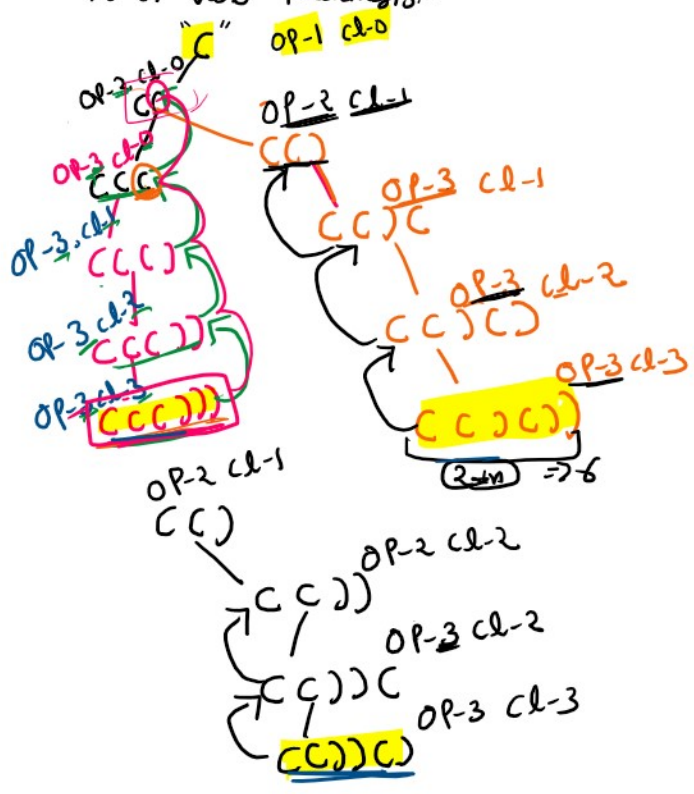 "("
OP-1 Cl-0
OP-2 Cl-0
((
OP-2 Cl-1
(()
OP-3 Cl-0
(((
OP-3 Cl-1
(()(
OP-3, Cl-1
((()
OP-3 Cl-2
(()()
OP-3 Cl-2
((())
OP-3 Cl-3
(()())
OP-3 Cl-3
((()))
2*n => 6
OP-2 Cl-1
(()
OP-2 Cl-2
(())
OP-3 Cl-2
(())(
OP-3 Cl-3
(())()